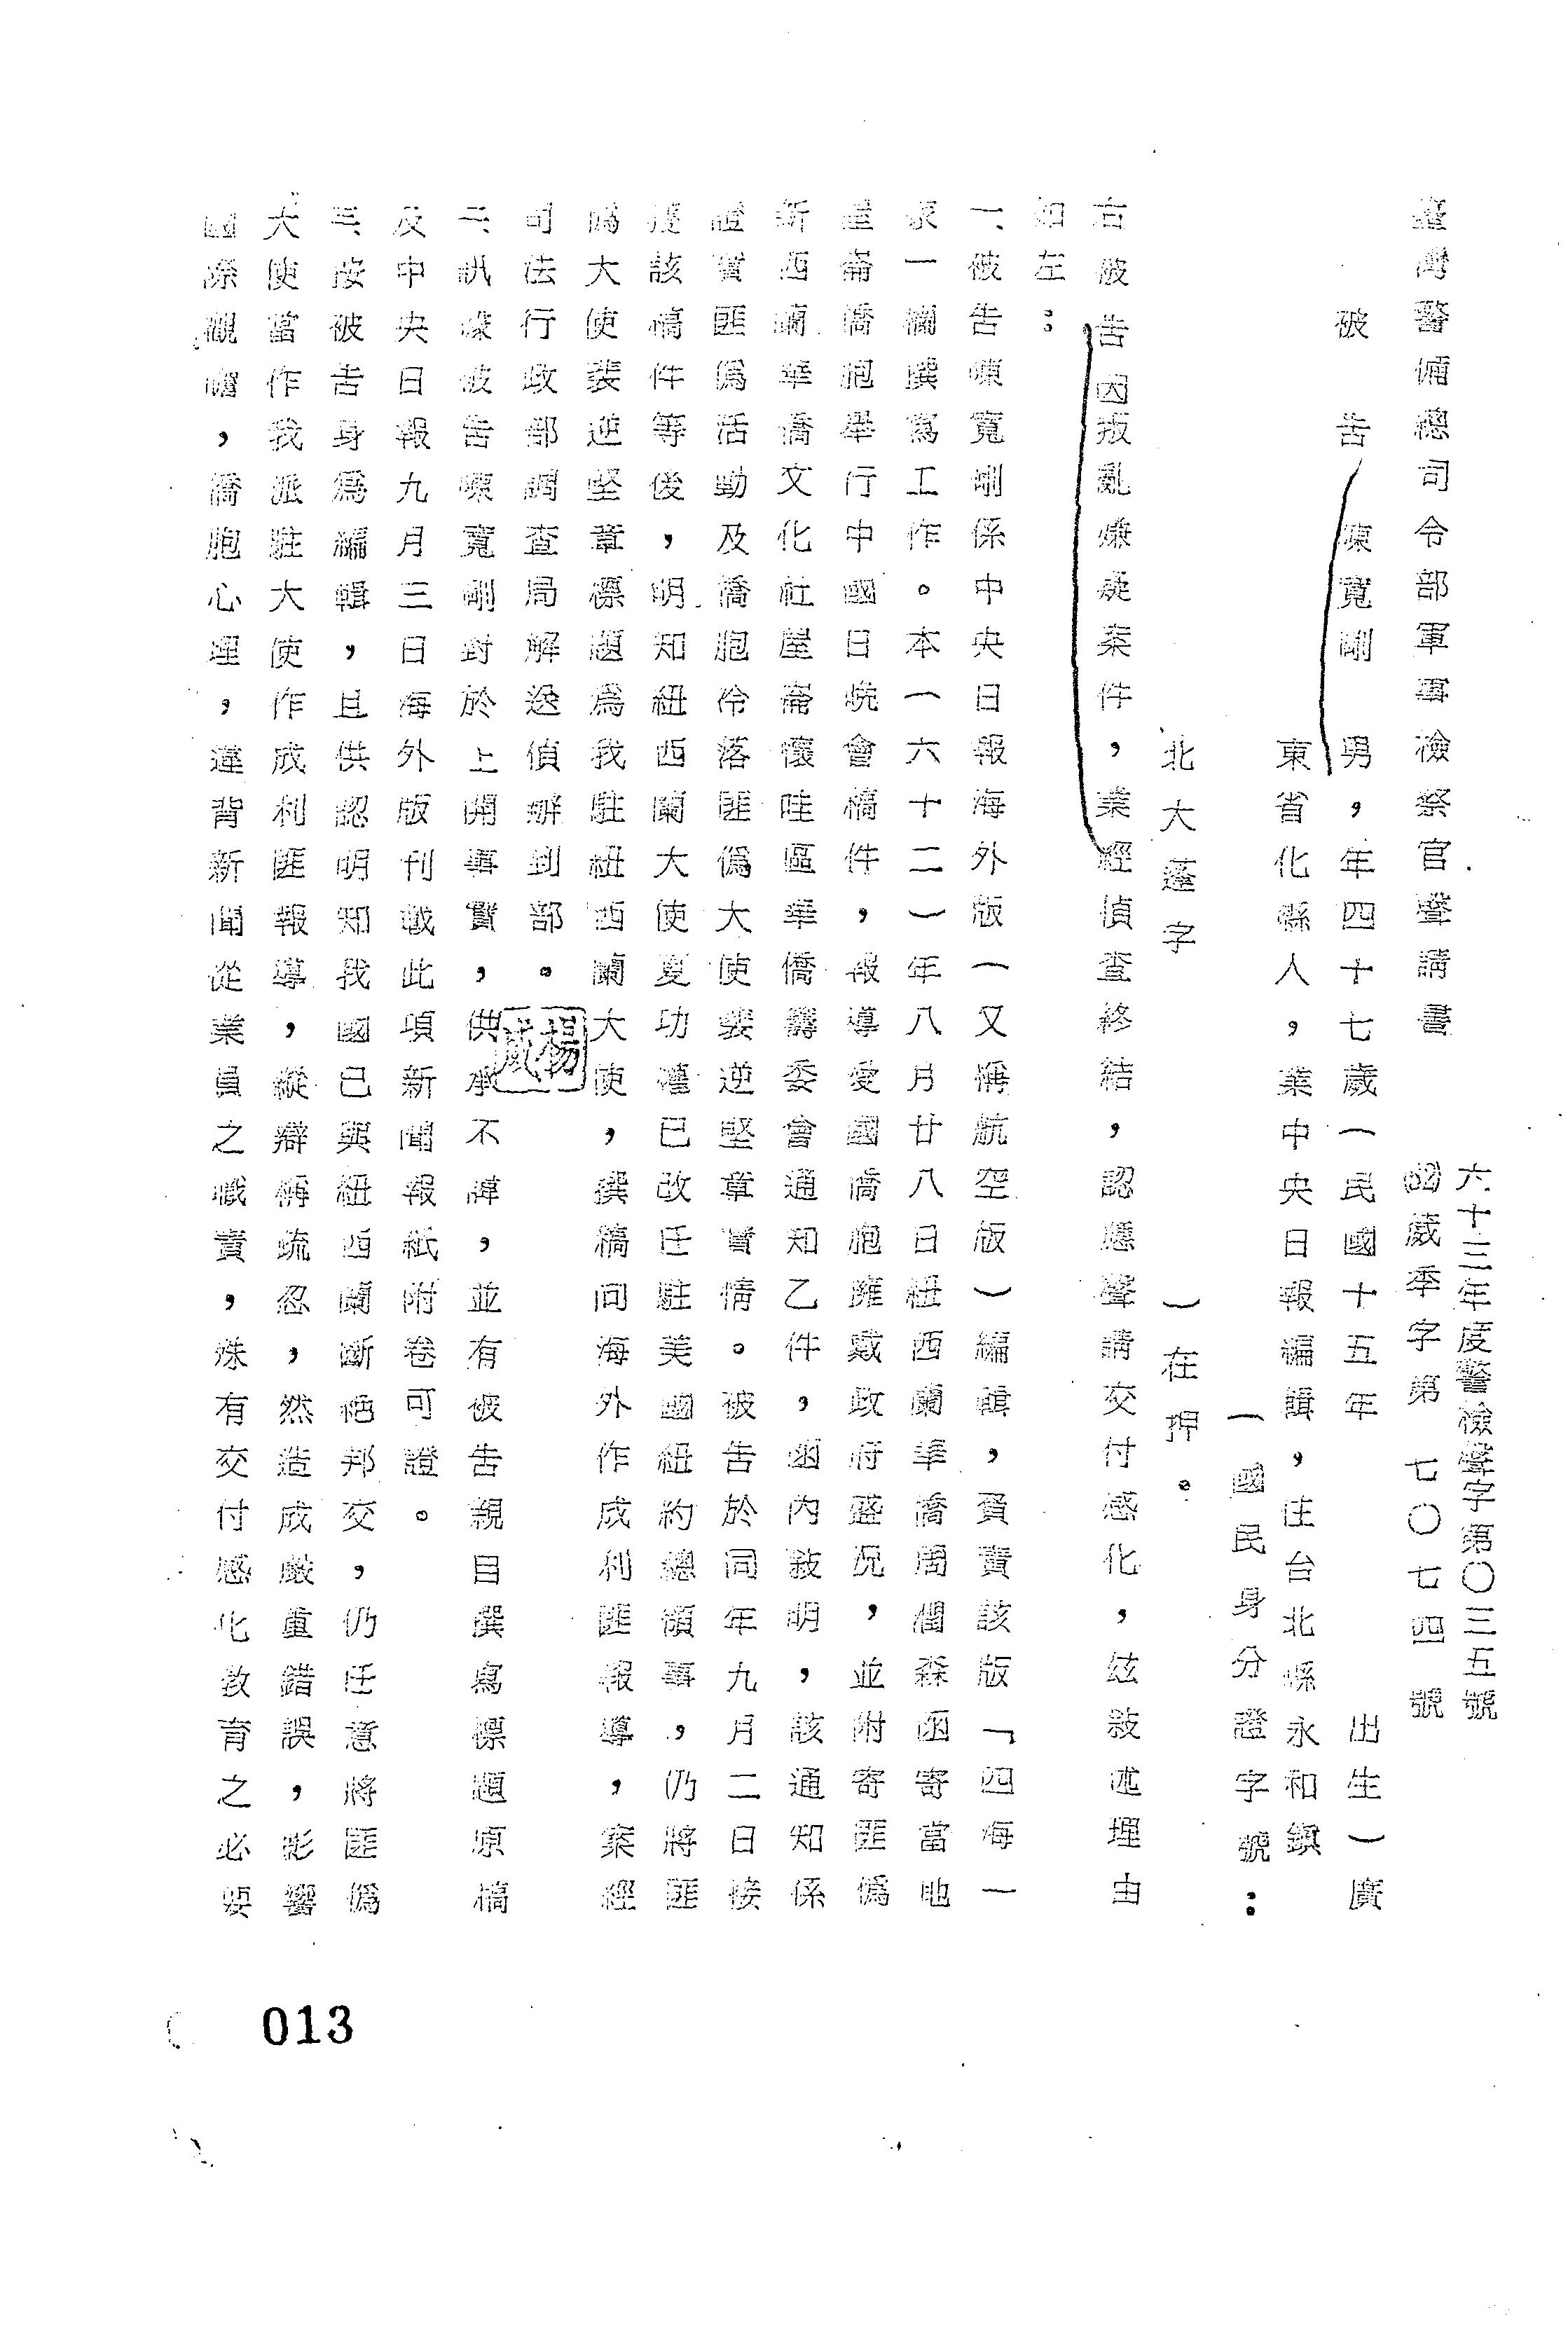 六十三年度警檢聲字第〇三五號
臺灣警備總司令部軍事檢察官聲請書
(62)葳季字第七〇七四號
被告陳寬剛 男，年四十七歲（民國十五年 出生）廣
東省化縣人，業中央日報編輯，住台北縣永和鎮
（國民身分證字號：
北大蓬字 ）在押。
右被告因叛亂嫌疑案件，業經偵查終結，認應聲請交付感化，茲敍述理由
如左：
一、被告陳寬剛係中央日報海外版（又稱航空版）編輯，負責該版「四海一
家一欄撰寫工作。本（六十二）年八月廿八日紐西蘭華僑周潤森函寄當地
屋崙僑胞舉行中國日晚會稿件，報導愛國僑胞擁戴政府盛況，並附寄匪僞
新西蘭華僑文化社屋崙懷哇區華僑籌委會通知乙件，函內敍明，該通知係
證實匪僞活動及僑胞冷落匪僞大使裴逆堅章實情。被告於同年九月二日接
獲該稿件等後，明知紐西蘭大使夏功權已改任駐美國紐約總領事，仍將匪
僞大使裴逆堅章標題爲我駐紐西蘭大使，撰稿向海外作成利匪報導，案經
司法行政部調查局解送偵辦到部。
楊威
二、訊據被告陳寬剛對於上開事實，供承不諱，並有被告親自撰寫標題原稿
及中央日報九月三日海外版刊載此項新聞報紙附卷可證。
三、按被告身爲編輯，且供認明知我國已與紐西蘭斷絕邦交，仍任意將匪僞
大使當作我派駐大使作成利匪報導，縱辯稱疏忽，然造成嚴重錯誤，影響
國際觀瞻，僑胞心理，違背新聞從業員之職責，殊有交付感化教育之必要
013